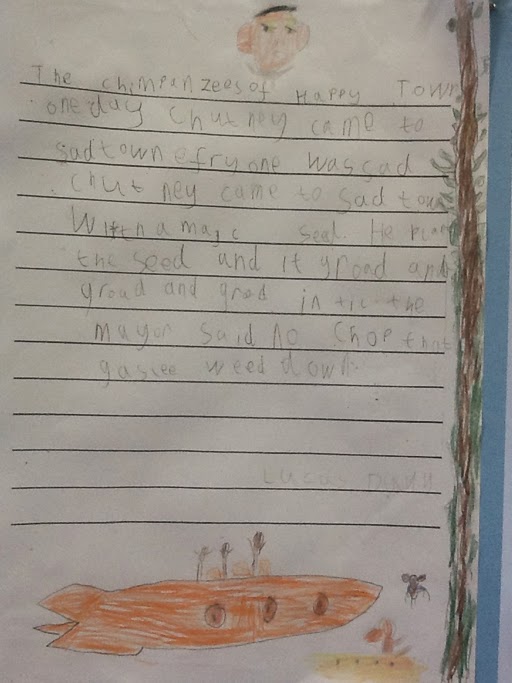 The chimpanzees of Happy Town
one day chutney came to
sadtown efryone was sad
chutney came to sad town
With a magic seal. He plant
the seed and it groad and
groud and grod in tic the
mayor said no chop that
gaslee weed down.
Lucas